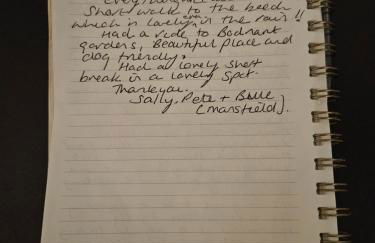 Short walk to the beach
which is lovely even in the rain!!
Had a ride to Bodnant
gardens, Beautiful place and
dog friendly.
Had a lovely short
break in a lovely spot.
Thankyou.
Sally, Pete + Blue
(Mansfield).